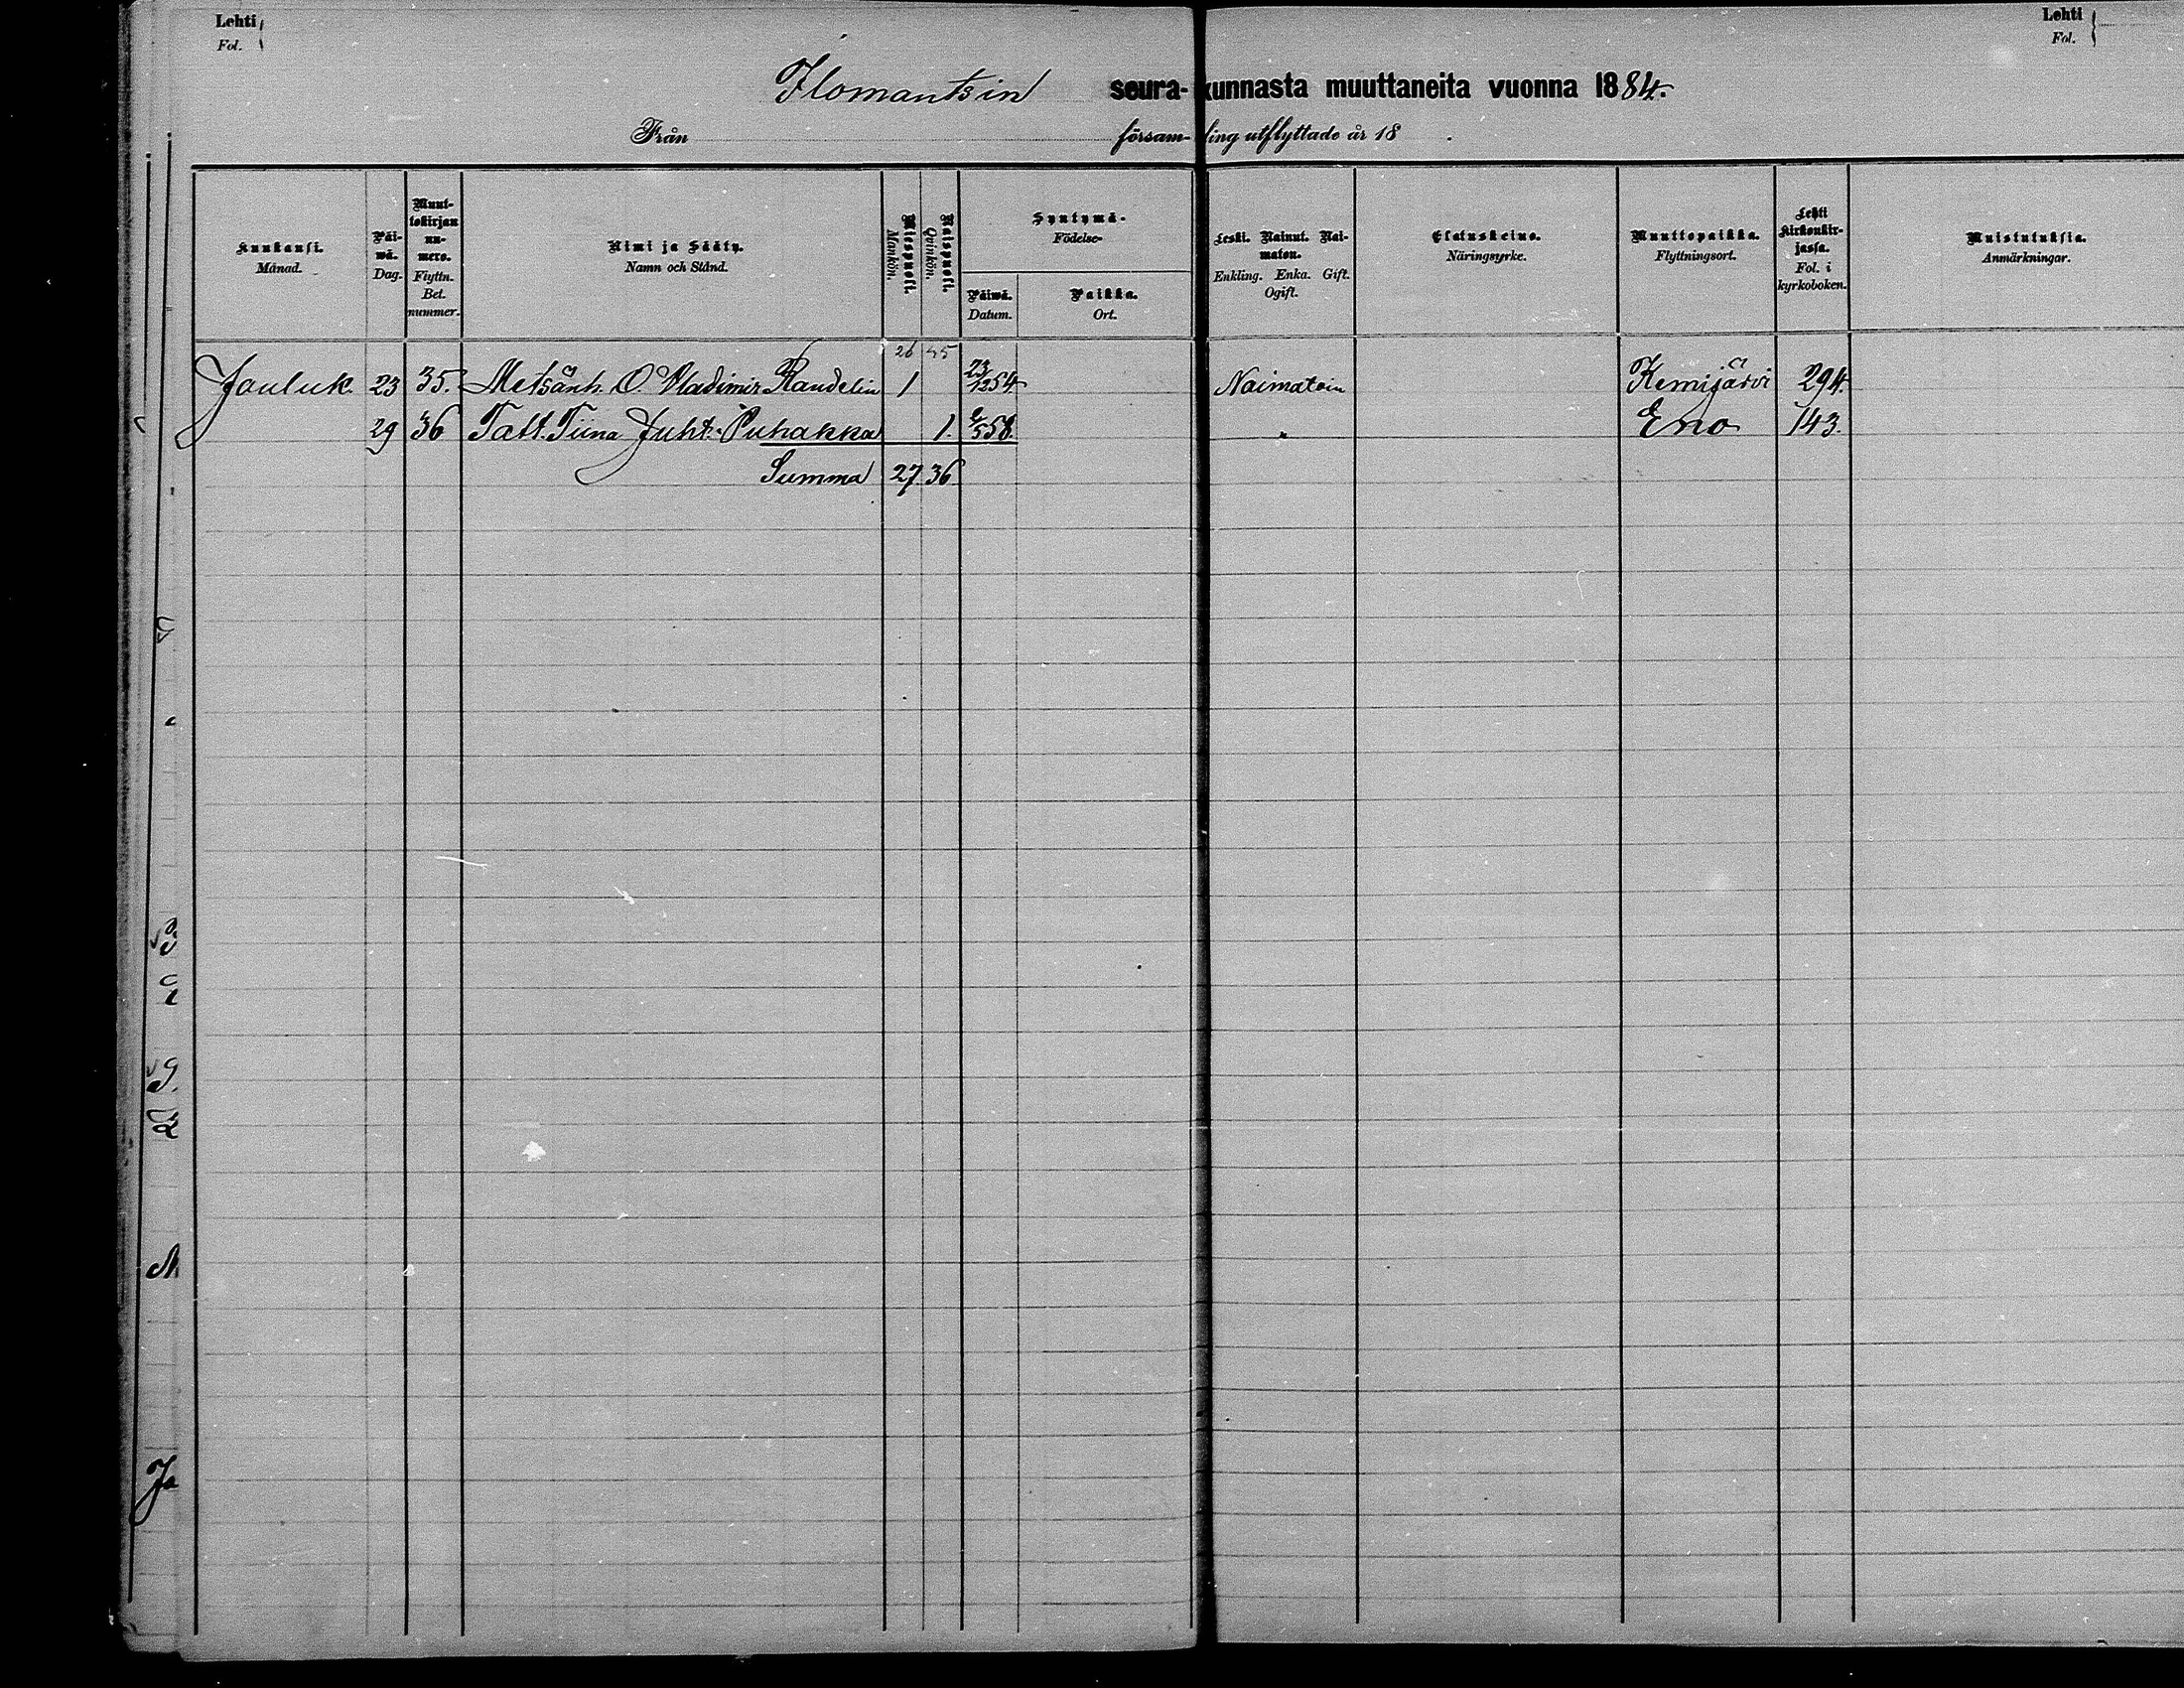 Lehti
Fol.
Lehti
Fol.
Ilomantsin seura-kunnasta muuttaneita vuonna 1884.
Från försam-ling utflyttade år 18 .
Kuukausi.
Månad.
Päi-
wä.
Dag.
Muut-
tokirjan
nu-
mero.
Flyttn.
Bet.
nummer.
Nimi ja Sääty.
Namn och Stånd.
Miespuoli.
Mankön.
Naispuoli.
Qvinkön.
Syntymä-
Födelse-
Päiwä.
Datum.
Paikka.
Ort.
Leski. Nainut. Nai-
maton.
Enkling. Enka. Gift.
Ogift.
Elatuskeino.
Näringsyrke.
Muuttopaikka.
Flyttningsort.
Lehti
Kirkonkir-
jassa.
Fol. i
kyrkoboken.
Muistutuksia.
Anmärkningar.
26
Jouluk. 23 35. Metsänh. O. Vladimir Randelin 1 23/12 54. Naimatoin Kemijärvi 294.
29 36 Talt. Tiina Juht. Puhakka 1. 2/5 58. " Eno 143.
Summa 27 36